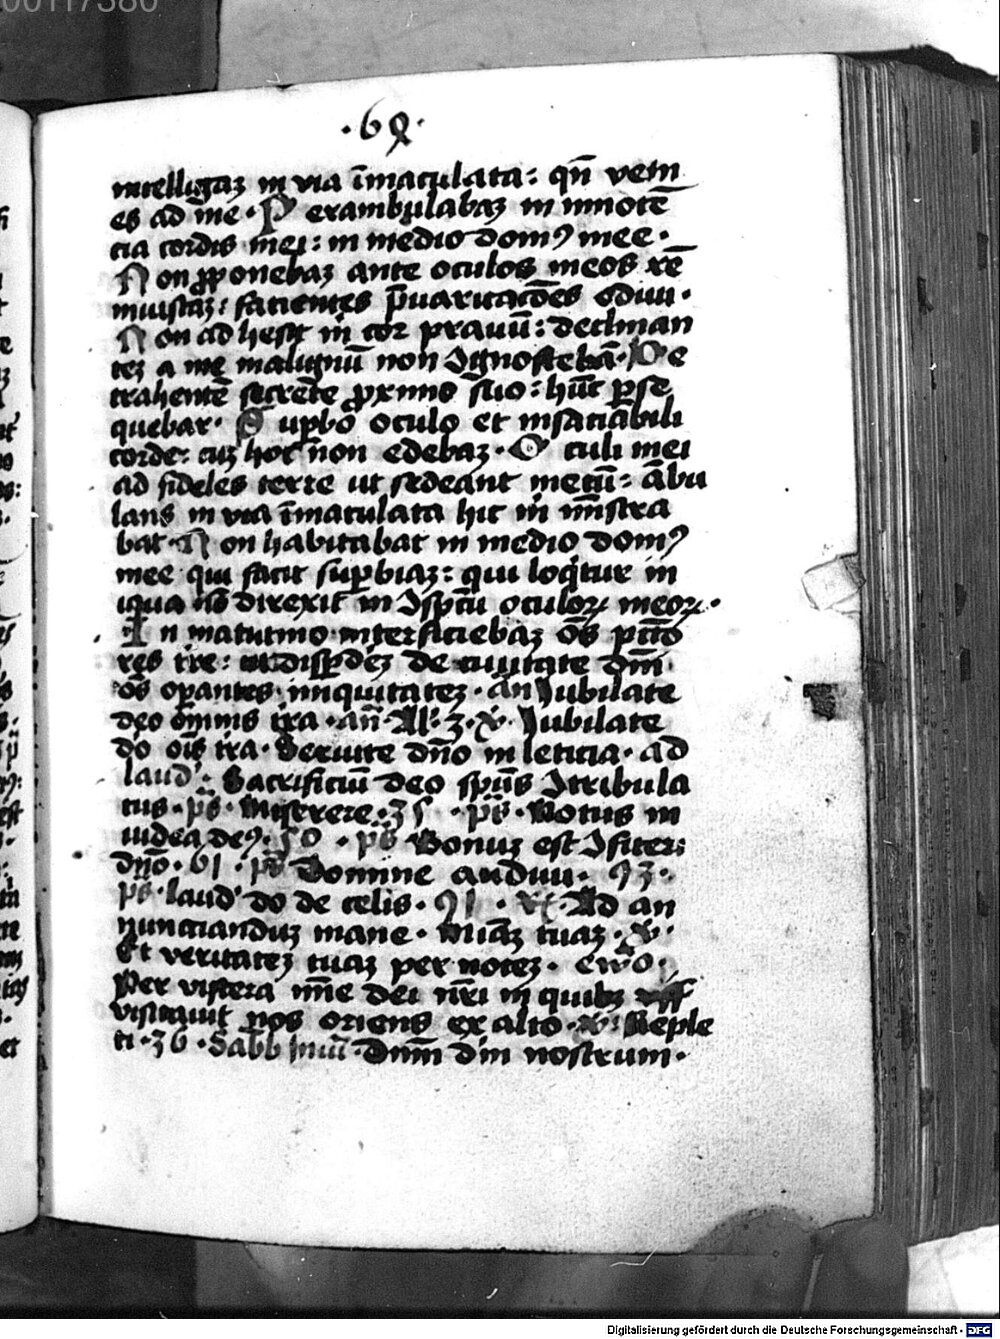 ·69·
intelligaz in via īmaculata: qn̄ veni
es ad me · Perambulabaz in innocē
cia cordis mei: in medio domꝰ mee·
Non ꝓponebaz ante oculos meos rē
iniustaz: facientes p̄uaricacōes odiui·
Non adhesit in cor prauū: declinan
tez a me malignū non ꝯgnoscebā· De
trahentē secrete proximo suo: hūc ꝑse
quebar· Suꝑbo oculo et insaciabili
corde: cuz hoc non edebaz· Oculi mei
ad fideles terre ut sedeant mecū: ābu
lans in via īmaculata hic m̄ m̄istra
bat· Non habitabat in medio domꝰ
mee qui facit suꝑbiaz: qui loqtur in
iqua nō direxit in ꝯspc̄tu oculoꝝ meoꝝ·
In matutino interficiebaz oēs pcc̄to
res tre: ut disꝑdez de ciuitate dn̄i
oēs oꝑantes iniquitatez· an̄ Jubilate
deo omnis tra· an̄· Al'· 3· ℣· Jubilate
do oīs tra· Seruite dn̄o in leticia· ad
laud'· Sacrificiū deo spūs ꝯtribula
tus· ps̄· Miserere· 35 · ps̄· Notus in
iudea deꝰ· 50 · ps̄ Bonuz est ꝯfiteri
dn̄o· 61 · ps̄ Domine audiui· 93·
ps̄· laud' do de celis· 91 · ℟· Ad an
nunciānduz mane· Miāz tuaz· ℣·
Et veritatez tuaz per noctez· ewo·
Per viscera mīe dei nr̄i in quibz
visitauit nos oriens ex alto· ℣: Reple
ti· 36· Sabb Inui· Dnm dm nostrum·